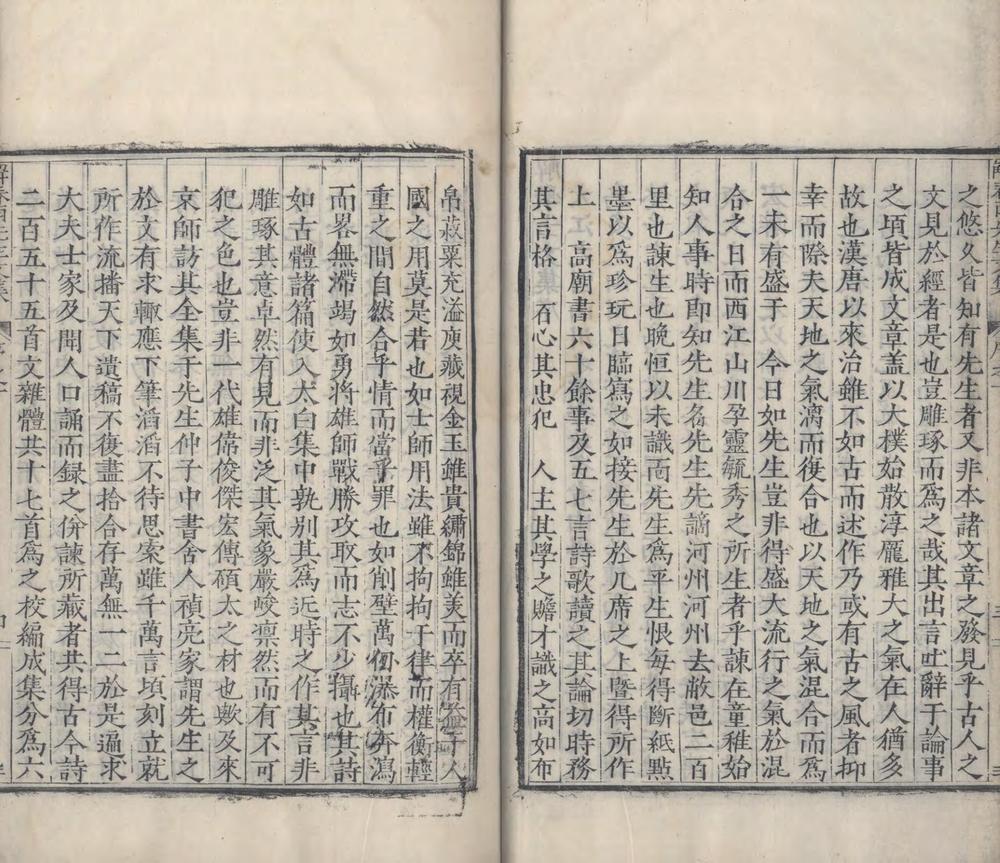 之悠久皆知有先生者又非本諸文章之發見乎古人之
文見於經者是也豈雕琢而爲之哉其出言吐辭于論事
之頃皆成文章盖以大樸始散淳龐雅大之氣在人猶多
故也漢唐以來治雖不如古而述作乃或有古之風者抑
幸而際夫天地之氣漓而復合也以天地之氣混合而爲
一未有盛于 今日如先生豈非得盛大流行之氣於混
合之日而西江山川孕靈毓秀之所生者乎諫在童稚始
知人事時即知先生名先生先謫河州河州去敝邑二百
里也諫生也晚恒以未識靣先生爲平生恨每得斷紙點
墨以爲珍玩日臨寫之如接先生於几席之上曁得所作
上 高廟書六十餘事及五七言詩歌讀之其論切時務
其言格 君心其忠犯 人主其學之贍才識之高如布
帛菽粟充溢庾藏視金玉雖貴繡錦雖美而卒有益于人
國之用莫是若也如士師用法雖不拘拘于律而權衡輕
重之間自然合乎情而當乎罪也如削壁萬仞瀑布奔瀉
而畧無滯竭如勇將雄師戰勝攻取而志不少攝也其詩
如古體諸篇使入太白集中孰别其爲近時之作其言非
雕琢其意卓然有見而非泛其氣象嚴峻凛然而有不可
犯之色也豈非一代雄偉俊傑宏傳碩大之材也歟及來
京師訪其全集于先生仲子中書舍人禎亮家謂先生之
於文有求輙應下筆滔滔不待思索雖千萬言頃刻立就
所作流播天下遺稿不復盡拾合存萬無一二於是遍求
大夫士家及聞人口誦而録之併諫所藏者共得古今詩
二百五十五首文雜體共十七首爲之校編成集分爲六